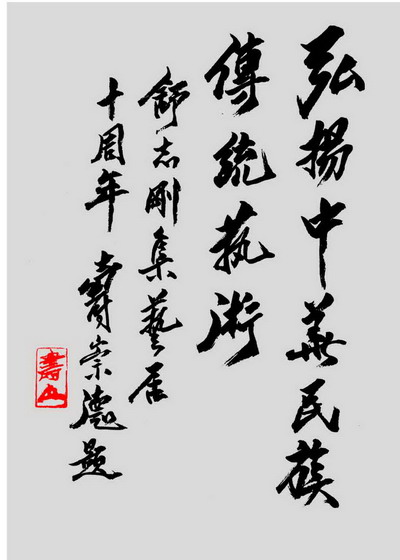 弘揚中華民族
傳統藝術
舒志剛集藝居
十周年 壽崇德題